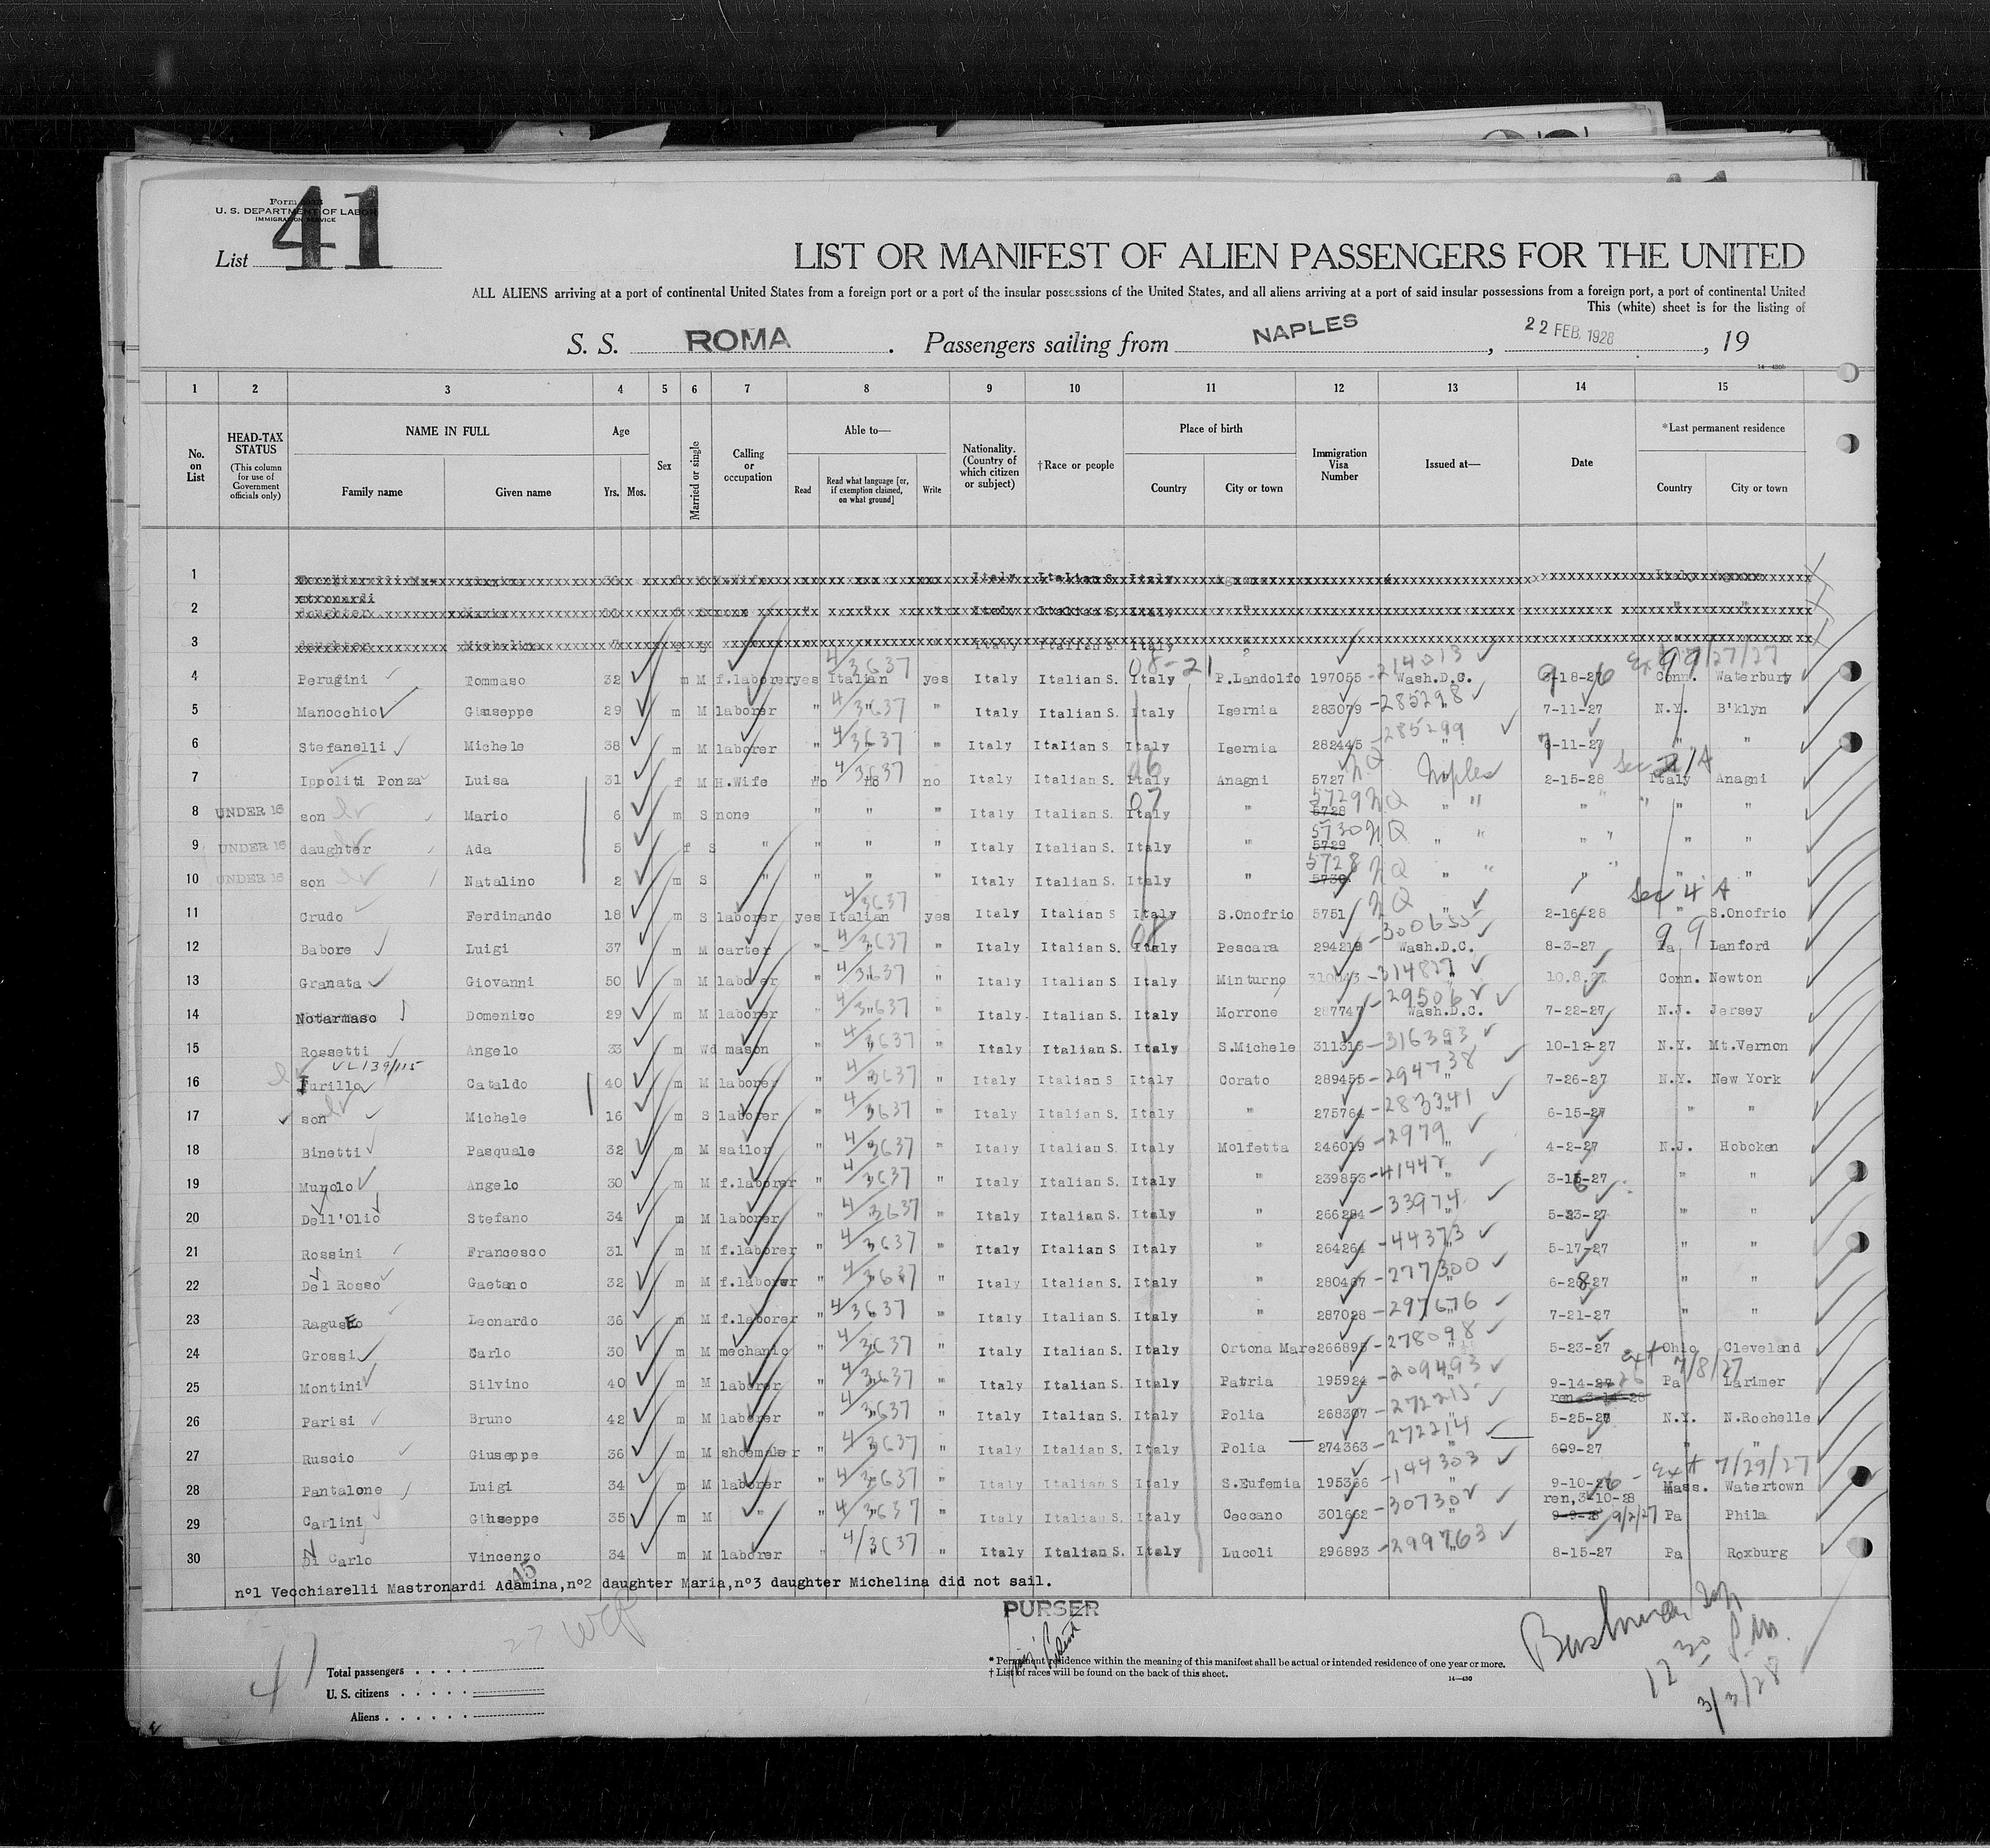 Form
U. S. DEPARTMENT OF LABOR
IMMIGRATION SERVICE
List 41
LIST OR MANIFEST OF ALIEN PASSENGERS FOR THE UNITED
ALL ALIENS arriving at a port of continental United States from a foreign port or a port of the insular possessions of the United States, and all aliens arriving at a port of said insular possessions from a foreign port, a port of continental United
This (white) sheet is for the listing of
S. S. ROMA. Passengers sailing from NAPLES, 22 FEB. 1928, 19
14—430b
1 2 3 4 5 6 7 8 9 10 11 12 13 14 15
No. on List
HEAD-TAX STATUS (This column for use of Government officials only)
NAME IN FULL Family name Given name
Age Yrs. Mos.
Sex
Married or single
Calling or occupation
Able to— Read Read what language [or, if exemption claimed, on what ground] Write
Nationality. (Country of which citizen or subject)
†Race or people
Place of birth Country City or town
Immigration Visa Number
Issued at—
Date
*Last permanent residence Country City or town
1 Italy Italian S. Italy
2 daughter Maria none " Italy Italian S. Italy "
3 daughter Michelina 7 Italy Italian S. Italy
4 Perugini Tommaso 32 m M f.laborer yes Italian 4/3637 yes Italy Italian S. Italy 08-21 P.Landolfo 197055 -214013 Wash.D.C. Ext 99 7/27/27 Conn. Waterbury
5 Manocchio Giuseppe 29 m M laborer " 4/3637 " Italy Italian S. Italy Isernia 283079 -285298 " 7-11-27 N.Y. B'klyn
6 Stefanelli Michele 38 m M laborer " 4/3637 " Italy Italian S. Italy Isernia 282445 -285299 " 7-11-27 " "
7 Ippoliti Ponza Luisa 31 f M H.Wife no no 4/3637 no Italy Italian S. Italy 06 Anagni 5727 NQ Naples 2-15-28 Italy Anagni
8 UNDER 16 son Mario 6 m S none " " " Italy Italian S. Italy 07 " 5729 NQ 5728 " " " "
9 UNDER 16 daughter Ada 5 f S " " " " Italy Italian S. Italy " 5730 NQ 5729 " " " "
10 UNDER 16 son Natalino 2 m S " " " " Italy Italian S. Italy " 5728 NQ 5730 " " " "
11 Crudo Ferdinando 18 m S laborer yes Italian 4/3637 yes Italy Italian S Italy S.Onofrio 5751 NQ " 2-16-28 Sec 4 A " S.Onofrio
12 Babore Luigi 37 m M carter " 4/3637 " Italy Italian S. Italy 08 Pescara 294219 -300655 Wash.D.C. 8-3-27 99 Pa Lanford
13 Granata Giovanni 50 m M laborer " 4/3637 " Italy Italian S Italy Minturno -314827 " 10.8.27 Conn. Newton
14 Notarmaso Domenico 29 m M laborer " 4/3637 " Italy Italian S. Italy Morrone 287747 -295062 Wash.D.C. 7-22-27 N.J. Jersey
15 Rossetti Angelo 33 m Wd mason " 4/3637 " Italy Italian S. Italy S.Michele 311316 -316393 " 10-12-27 N.Y. Mt.Vernon
VL139/115
16 Furillo Cataldo 40 m M laborer " 4/3637 " Italy Italian S Italy Corato 289455 -294738 " 7-26-27 N.Y. New York
17 son Michele 16 m S laborer " 4/3637 " Italy Italian S. Italy " 275764 -283341 " 6-15-27 " "
18 Binetti Pasquale 32 m M sailor " 4/3637 " Italy Italian S. Italy Molfetta 246019 -2979 " 4-2-27 N.J. Hoboken
19 Murolo Angelo 30 m M f.laborer " 4/3637 " Italy Italian S. Italy " 239853 -41442 " 3-16-27 " "
20 Dell'Olio Stefano 34 m M laborer " 4/3637 " Italy Italian S. Italy " 266284 -33974 " 5-23-27 " "
21 Rossini Francesco 31 m M f.laborer " 4/3637 " Italy Italian S Italy " 264264 -44373 " 5-17-27 " "
22 Del Rosso Gaetano 32 m M f.laborer " 4/3637 " Italy Italian S. Italy " 280467 -277300 " 6-28-27 " "
23 Leonardo 36 m M f.laborer " 4/3637 " Italy Italian S. Italy " 287028 -297676 " 7-21-27 " "
24 Grossi Carlo 30 m M mechanic " 4/3637 " Italy Italian S. Italy Ortona Mare 266895 -278098 5-23-27 Ohio Cleveland
25 Montini Silvino 40 m M laborer " 4/3637 " Italy Italian S. Italy Patria 195924 -209493 " 9-14-26 Ext 7/8/27 Pa Larimer
26 Parisi Bruno 42 m M laborer " 4/3637 " Italy Italian S. Italy Polia 268307 -272215 " 5-25-27 N.Y. N.Rochelle
27 Ruscio Giuseppe 36 m M shoemaker " 4/3637 " Italy Italian S. Italy Polia 274363 -272214 " 609-27 " "
28 Pantalone Luigi 34 m M laborer " 4/3637 " Italy Italian S Italy S.Eufemia 195366 -149303 " 9-10-26 Ext 7/29/27 Mass. Watertown
ren,3-10-28
29 Carlini Giuseppe 35 m M " " 4/3637 " Italy Italian S. Italy Ceccano 301662 -307302 " 9/2/27 Pa Phila
30 Di Carlo Vincenzo 34 m M laborer " 4/3637 " Italy Italian S. Italy Lucoli 296893 -299763 " 8-15-27 Pa Roxburg
n°1 Vecchiarelli Mastronardi Adamina,n°2 daughter Maria,n°3 daughter Michelina did not sail.
PURSER
* Permanent residence within the meaning of this manifest shall be actual or intended residence of one year or more.
† List of races will be found on the back of this sheet.
14—430
Total passengers
U. S. citizens
Aliens
41
12 30 P.M.
3/3/28